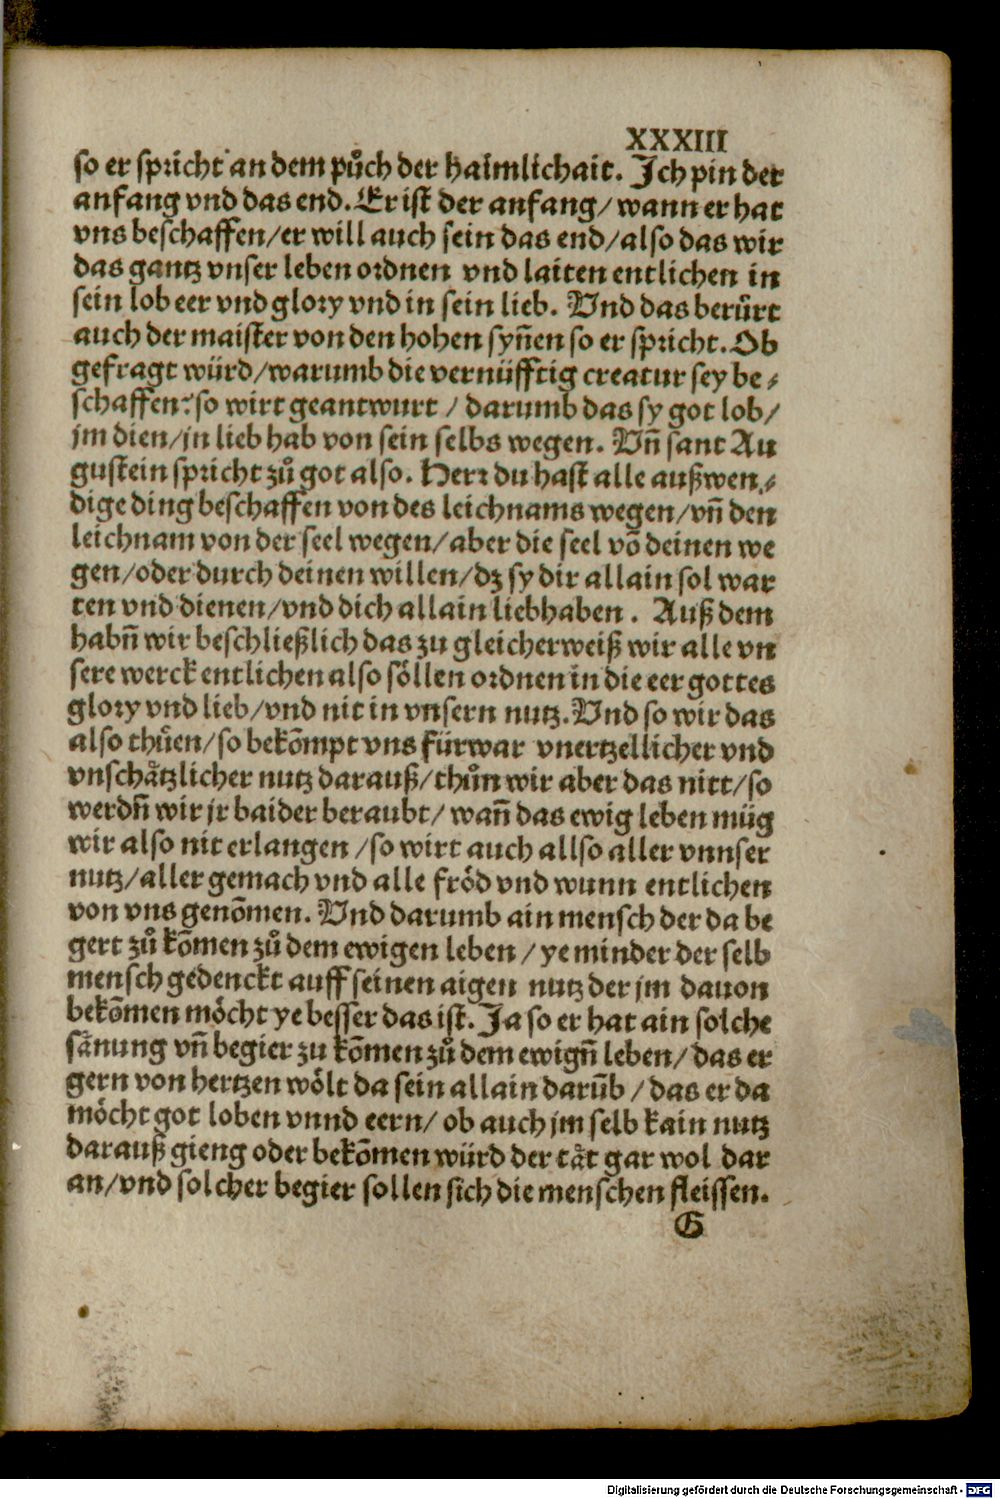 XXXIII
so er spricht an dem půch der haimlichait. Ich pin der
anfang vnd das end. Er ist der anfang/ wann er hat
vns beschaffen/er will auch sein das end/also das wir
das gantz vnser leben ordnen vnd laiten entlichen in
sein lob eer vnd glory vnd in sein lieb. Vnd das berůrt
auch der maister von den hohen syñen so er spricht. Ob
gefragt würd/warumb die vernüfftig creatur sey be⸗
schaffen: so wirt geantwurt / darumb das sy got lob/
jm dien/jn lieb hab von sein selbs wegen. Vñ sant Au
gustein spricht zů got also. Herr du hast alle außwen⸗
dige ding beschaffen von des leichnams wegen/vñ den
leichnam von der seel wegen/aber die seel võ deinen we
gen/oder durch deinen willen/dz sy dir allain sol war
ten vnd dienen/vnd dich allain liebhaben . Auß dem
habñ wir beschließlich das zu gleicherweiß wir alle vn
sere werck entlichen also söllen ordnen in die eer gottes
glory vnd lieb/vnd nit in vnsern nutz. Vnd so wir das
also thůen/so bekõmpt vns fürwar vnertzellicher vnd
vnschätzlicher nutz darauß/thůn wir aber das nitt/so
werdñ wir jr baider beraubt/ wañ das ewig leben müg
wir also nit erlangen /so wirt auch allso aller vnnser
nutz/aller gemach vnd alle fröd vnd wunn entlichen
von vns genõmen. Vnd darumb ain mensch der da be
gert zů kõmen zů dem ewigen leben / ye minder der selb
mensch gedenckt auff seinen aigen nutz der jm dauon
bekõmen möcht ye besser das ist. Ja so er hat ain solche
sänung vñ begier zu kõmen zů dem ewigñ leben/ das er
gern von hertzen wölt da sein allain darũb / das er da
möcht got loben vnnd eern/ ob auch jm selb kain nutz
darauß gieng oder bekõmen würd der tät gar wol dar
an/vnd solcher begier sollen sich die menschen fleissen.
G
Digitalisierung gefördert durch die Deutsche Forschungsgemeinschaft - DFG